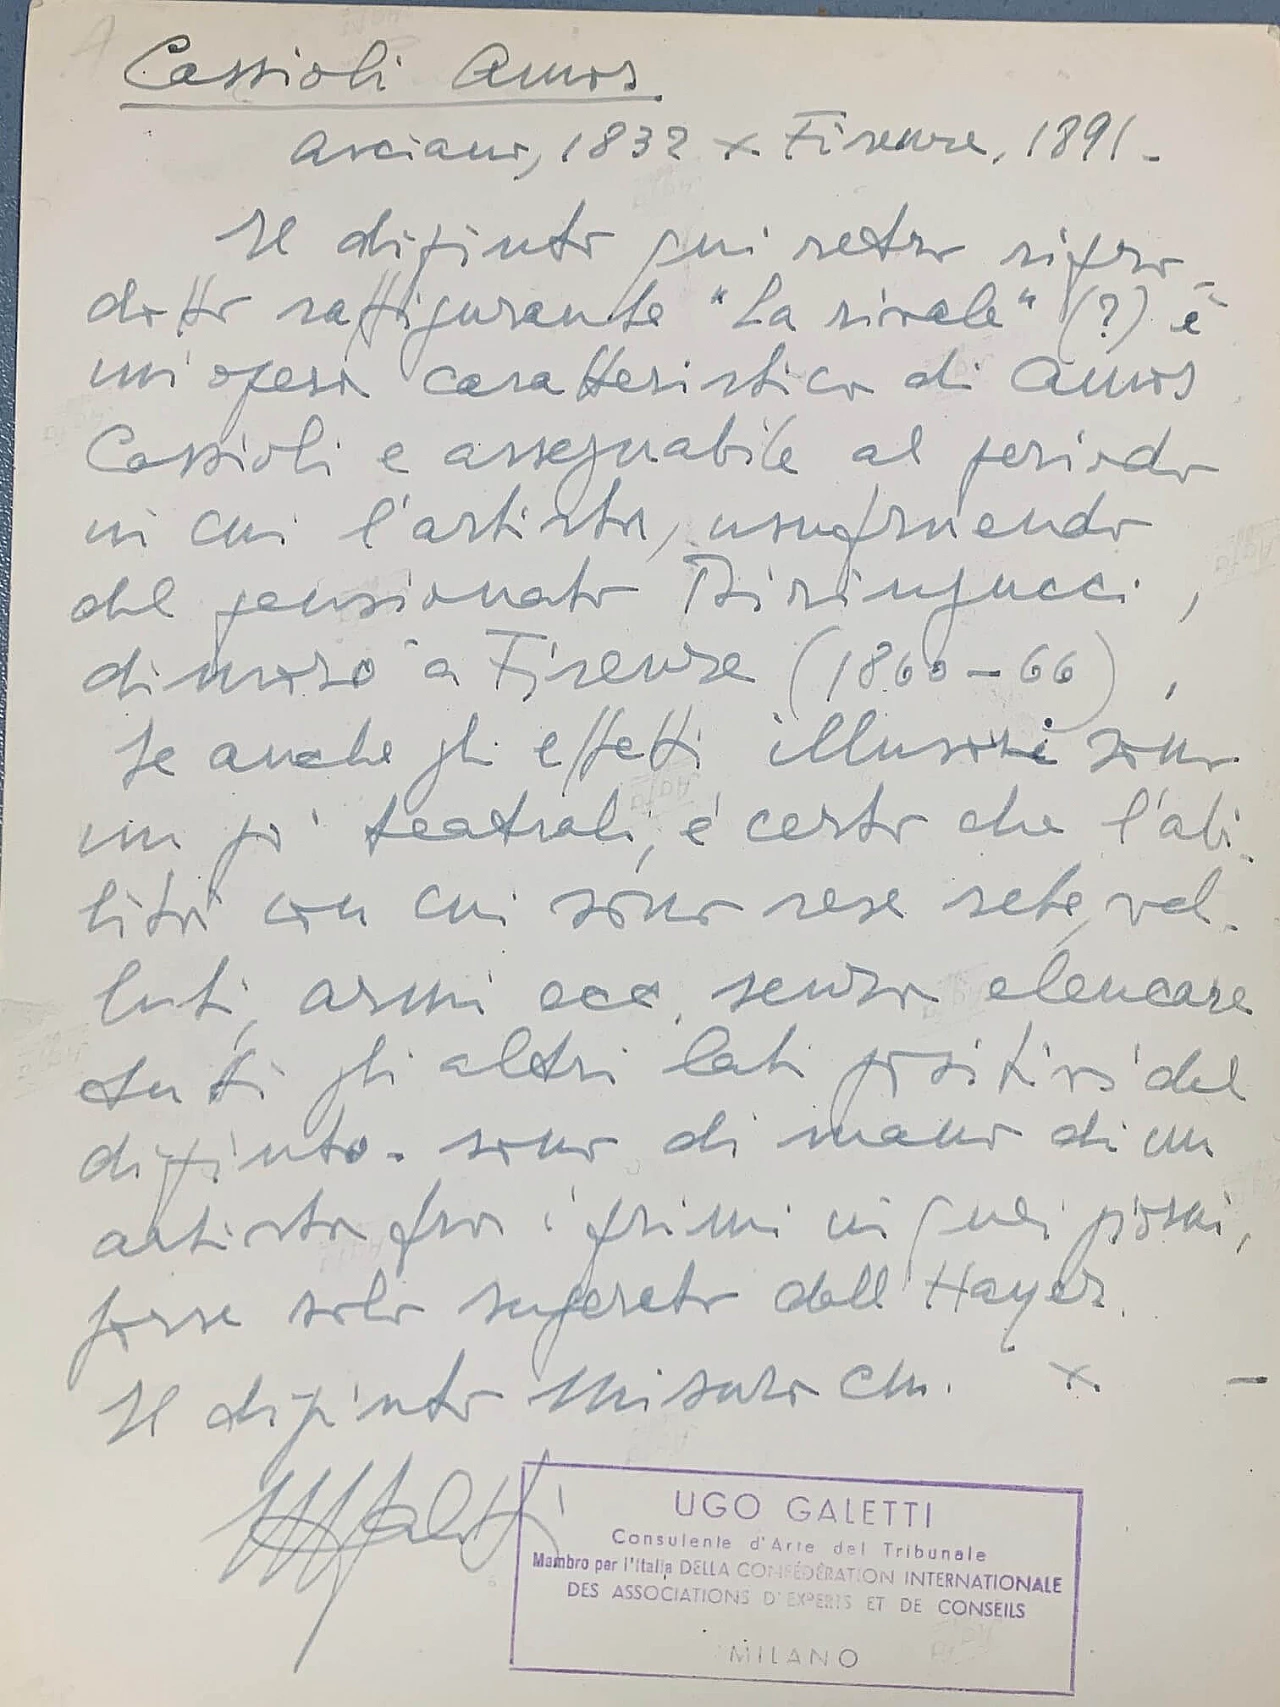 Cassioli Amos.
Asciano, 1832 x Firenze, 1891-
Il dipinto qui retro ripro-
dotto raffigurante "La rivale" (?) è
un'opera caratteristica di Amos
Cassioli e assegnabile al periodo
in cui l'artista, usufruendo
del pensionato Biringucci,
dimorò a Firenze (1860-66),
Se anche gli effetti illusori sono
un po' teatrali, è certo che l'abi-
lità con cui sono rese sete, vel-
luti, armi ecc. senza elencare
tutti gli altri lati positivi del
dipinto - sono di mano di un
artista fra i primi in quei giorni,
forse solo superato dall'Hayez.
Il dipinto misura cm. x. -
UGO GALETTI
Consulente d'Arte del Tribunale
Membro per l'Italia DELLA CONFÉDÉRATION INTERNATIONALE
DES ASSOCIATIONS D'EXPERTS ET DE CONSEILS
MILANO